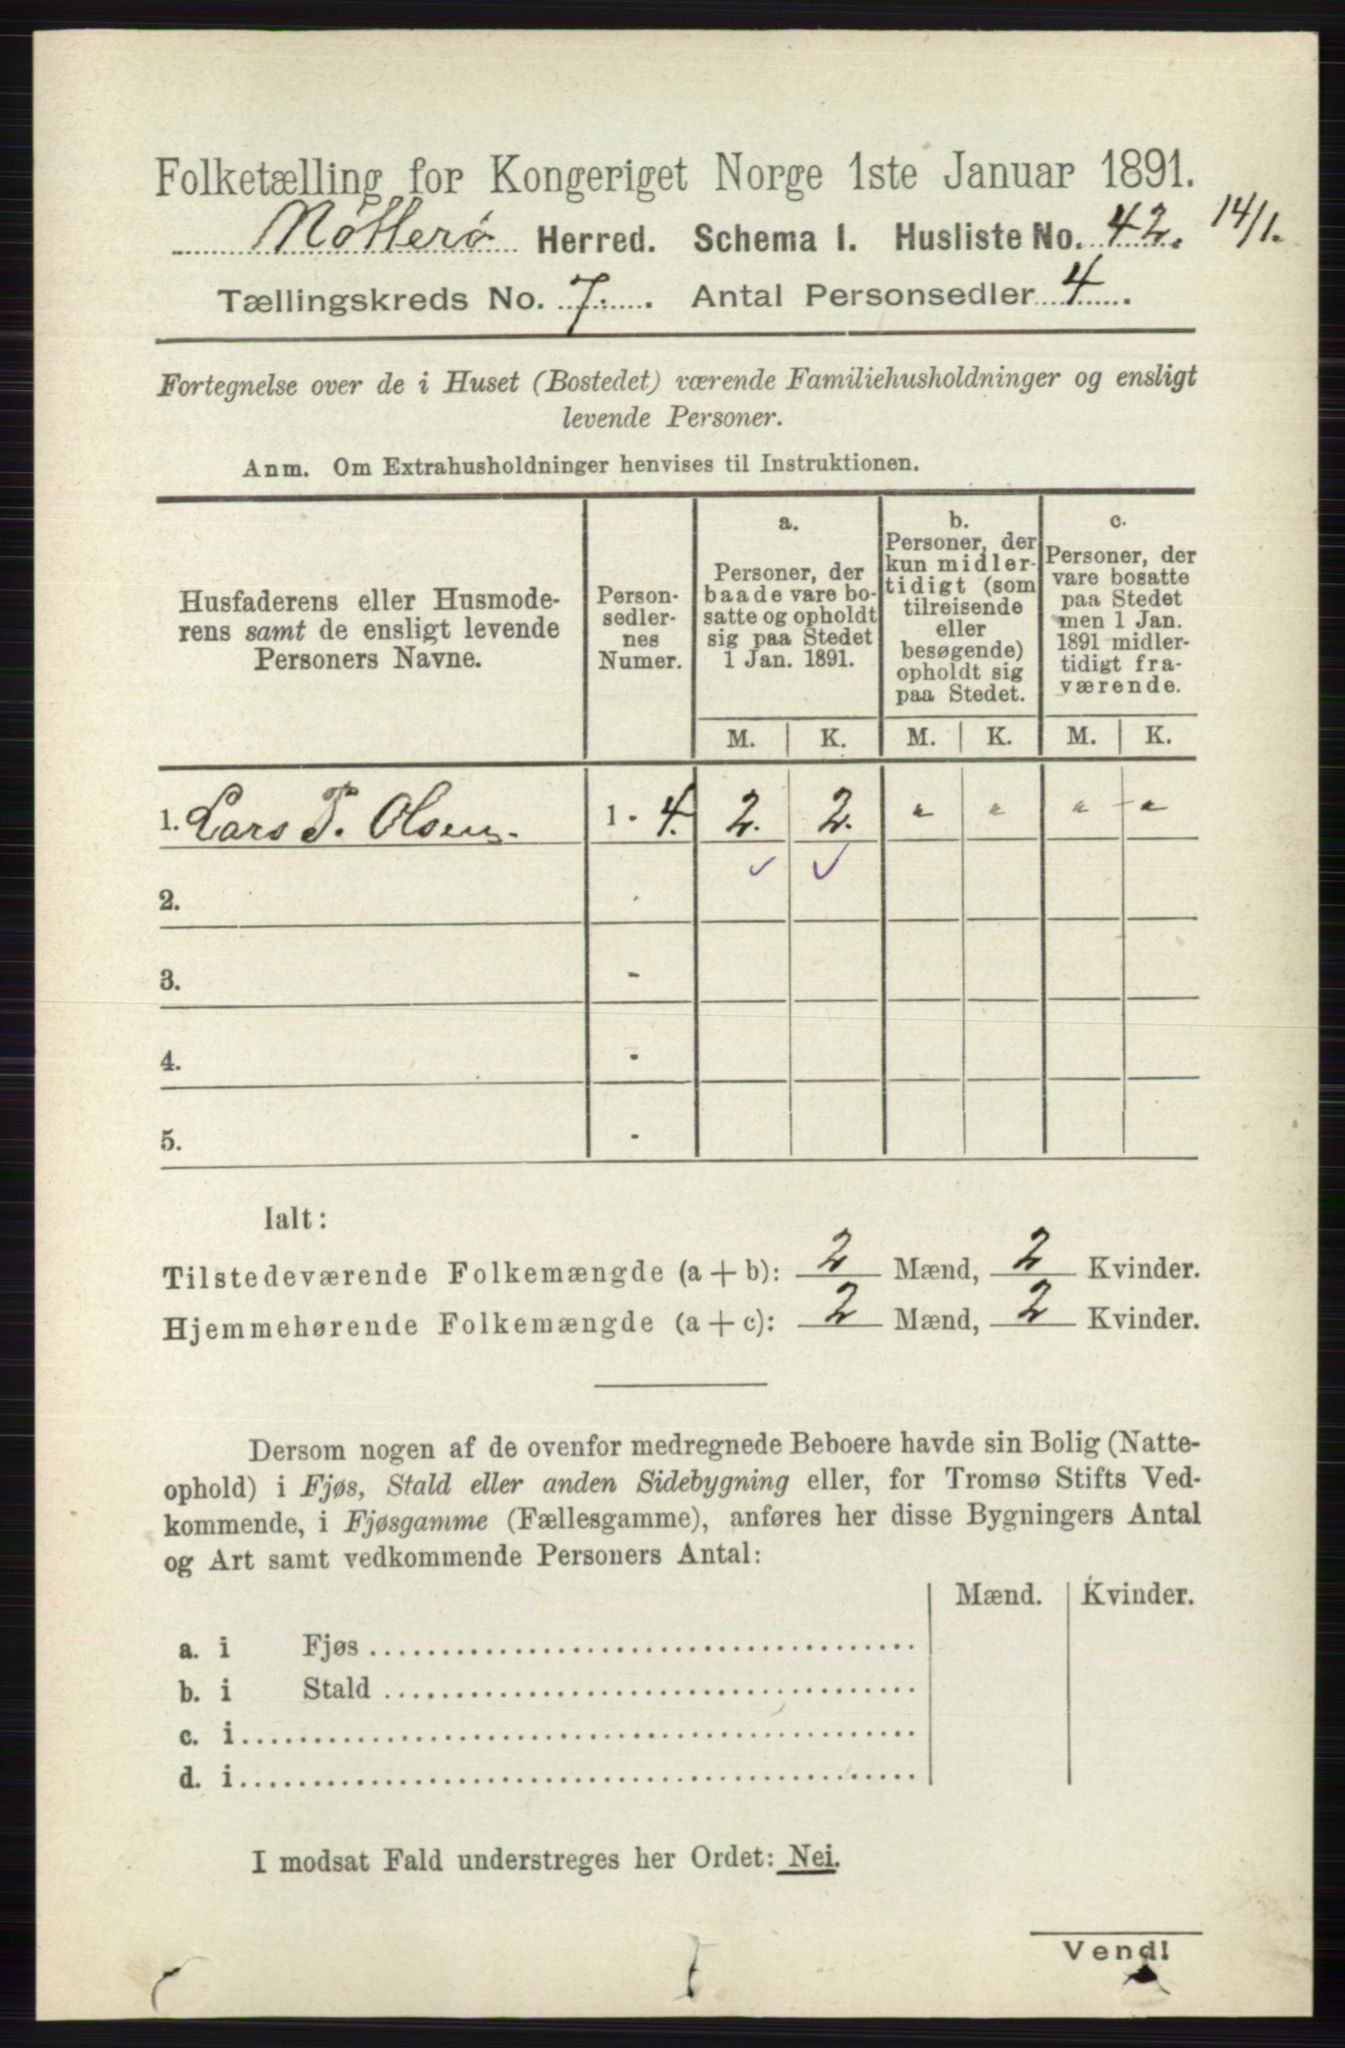 Folketælling for Kongeriget Norge 1ste Januar 1891.
Nøtterø Herred. Schema I. Husliste No. 42. 14/1.
Tællingskreds No. 7. Antal Personsedler 4.
Fortegnelse over de i Huset (Bostedet) værende Familiehusholdninger og ensligt
levende Personer.
Anm. Om Extrahusholdninger henvises til Instruktionen.
Husfaderens eller Husmode-
rens samt de ensligt levende
Personers Navne.
Person-
sedler-
nes
Numer.
a.
Personer, der
baade vare bo-
satte og opholdt
sig paa Stedet
1 Jan. 1891.
b.
Personer, der
kun midler-
tidigt (som
tilreisende
eller
besøgende)
opholdt sig
paa Stedet.
c.
Personer, der
vare bosatte
paa Stedet
men 1 Jan.
1891 midler-
tidigt fra-
værende.
M. K. M. K. M. K.
1. Lars P. Olsen. 1 - 4. 2. 2. " " " "
2. -
3. -
4. -
5. -
Ialt:
Tilstedeværende Folkemængde (a + b): 2 Mænd, 2 Kvinder.
Hjemmehørende Folkemængde (a + c): 2 Mænd, 2 Kvinder.
Dersom nogen af de ovenfor medregnede Beboere havde sin Bolig (Natte-
ophold) i Fjøs, Stald eller anden Sidebygning eller, for Tromsø Stifts Ved-
kommende, i Fjøsgamme (Fællesgamme), anføres her disse Bygningers Antal
og Art samt vedkommende Personers Antal:
Mænd. Kvinder.
a. i Fjøs
b. i Stald
c. i
d. i
I modsat Fald understreges her Ordet: Nei.
Vend!